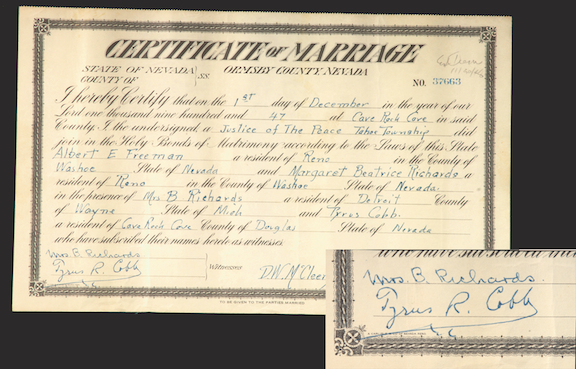 CERTIFICATE OF MARRIAGE
STATE OF NEVADA
COUNTY OF
SS.
ORMSBY COUNTY, NEVADA
NO. 37663
I hereby Certify that on the 1ST day of December in the year of our
Lord one thousand nine hundred and 47 at Cave Rock Cove in said
County, I the undersigned a Justice of The Peace Tahoe Township did
join in the Holy Bonds of Matrimony according to the Laws of this State
Albert E Freeman a resident of Reno in the County of
Washoe State of Nevada and Margaret Beatrice Richards a
resident of Reno in the County of Washoe State of Nevada
in the presence of Mrs B Richards a resident of Detroit County
of Wayne State of Mich and Tyrus Cobb
a resident of Cave Rock Cove County of Douglas State of Nevada
who have subscribed their names hereto as witnesses.
Mrs. B. Richards
Tyrus R. Cobb
Witnesses
D.W.
TO BE GIVEN TO THE PARTIES MARRIED
who have subscri
Mrs. B. Richards.
Tyrus R. Cobb